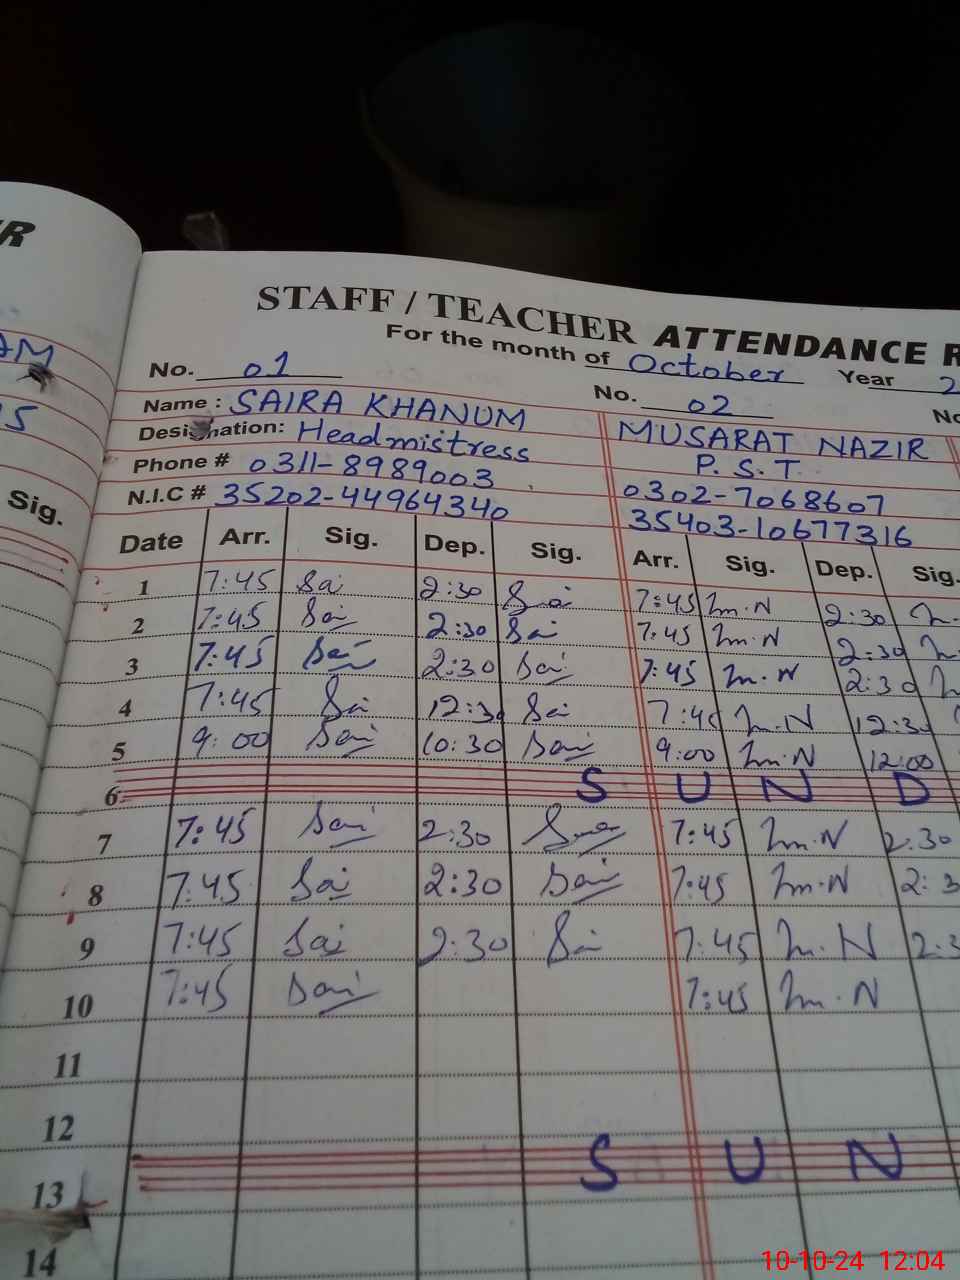 STAFF / TEACHER ATTENDANCE R
For the month of October Year 2
No. 01 No. 02 No
Name : SAIRA KHANUM MUSARAT NAZIR
Designation: Headmistress P. S. T.
Phone # 0311-8989003 0302-7068607
N.I.C # 35202-44964340 35403-10677316
Date Arr. Sig. Dep. Sig. Arr. Sig. Dep. Sig.
1 7:45 Sai 2:30 Sai 7:45 m.N 2:30
2 7:45 Sai 2:30 Sai 7:45 m.N 2:30
3 7:45 Sai 2:30 Sai 7:45 m.N 2:30
4 7:45 Sai 12:30 Sai 7:45 m.N 12:30
5 9:00 Sai 10:30 Sai 9:00 m.N 12:00
6 S U N D
7 7:45 Sai 2:30 7:45 m.N 2:30
8 7:45 Sai 2:30 Sai 7:45 m.N 2:3
9 7:45 Sai 2:30 Sai 7:45 m.N 2:3
10 7:45 Sai 7:45 m.N
11
12
13 S U N
14
Sig.
10-10-24 12:04